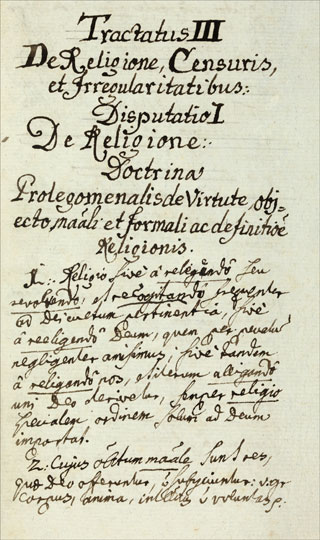 Tractatus III
De Religione, Censuris,
et Irregularitatibus:
Disputatio I
De Religione:
Doctrina
Prolegomenalis de Virtute, obj-
ecto, maãli et formali ac definitiõe
Religionis.
1.. Religio sive à relegendõ seu
revolvendõ, et recogitandõ frequenter
ad Dei cultum pertinentia, sive
à reeligendõ Deum, quem per
negligenter amisimus; sive tandem
à religandõ nos, et iterum alligandõ
uni Deo derivetur, semper religio
specialem, ordinem solum ad Deum
importat.
2: Cujus obtum maãle sunt res,
quæ Deo offeruntur, v. gr.
corpus, anima, voluntas